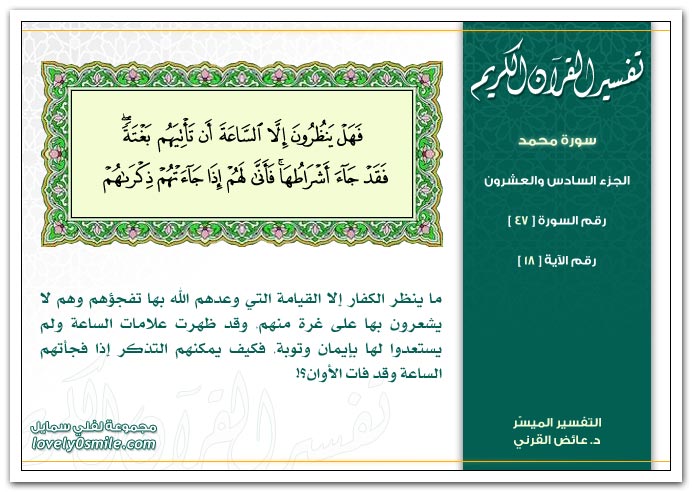 تفسير القرآن الكريم
سورة محمد
الجزء السادس والعشرون
رقم السورة [ ٤٧ ]
رقم الآية [ ١٨ ]
فَهَلْ يَنظُرُونَ إِلَّا ٱلسَّاعَةَ أَن تَأْتِيَهُم بَغْتَةً ۖ
فَقَدْ جَآءَ أَشْرَاطُهَا ۚ فَأَنَّىٰ لَهُمْ إِذَا جَآءَتْهُمْ ذِكْرَىٰهُمْ
ما ينظر الكفار إلا القيامة التي وعدهم الله بها تفجؤهم وهم لا
يشعرون بها على غرة منهم، وقد ظهرت علامات الساعة ولم
يستعدوا لها بإيمان وتوبة، فكيف يمكنهم التذكر إذا فجأتهم
الساعة وقد فات الأوان؟!
تفسير القرآن الكريم
التفسير الميسّر
د. عائض القرني
مجموعة لفلي سمايل
lovely0smile.com